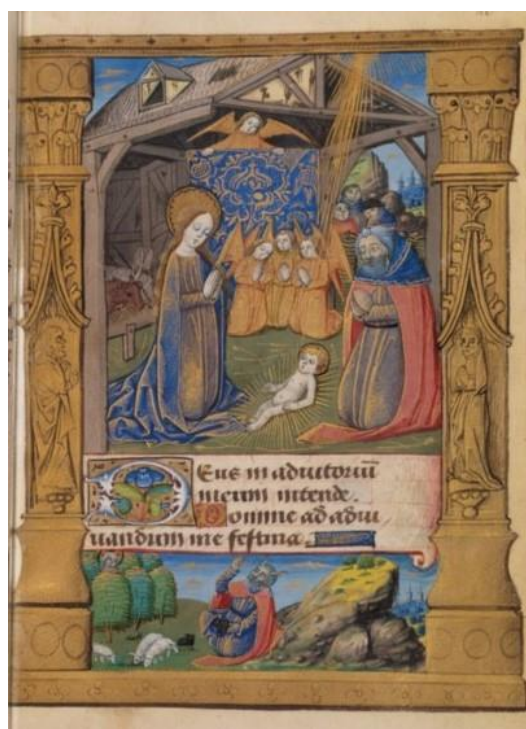 Deus in adiutoriu
meum intende.
Domine ad adiu
uandum me festina.